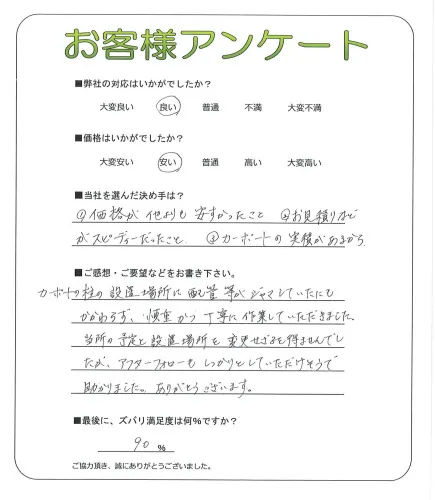 お客様アンケート
■弊社の対応はいかがでしたか？
大変良い 良い 普通 不満 大変不満
■価格はいかがでしたか？
大変安い 安い 普通 高い 大変高い
■当社を選んだ決め手は？
①価格が他よりも安すかったこと ②お見積りなど
がスピーディーだったこと、③カーポートの実積があるから
■ご感想・ご要望などをお書き下さい。
カーポートの柱の設置場所に配置等がジャマしていたにも
かかわらず、慎重かつ丁寧に作業していただきました。
当所の予定と設置場所を変更せざるを得ませんでし
たが、アフターフォローもしっかりとしていただけそうで
助かりました。ありがとうございます。
■最後に、ズバリ満足度は何％ですか？
90 ％
ご協力頂き、誠にありがとうございました。